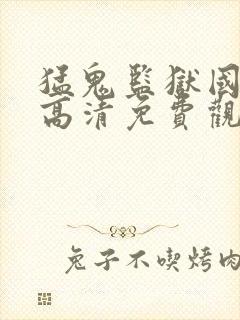 猛鬼監獄國
高清免費觀
兔子不喫烤肉